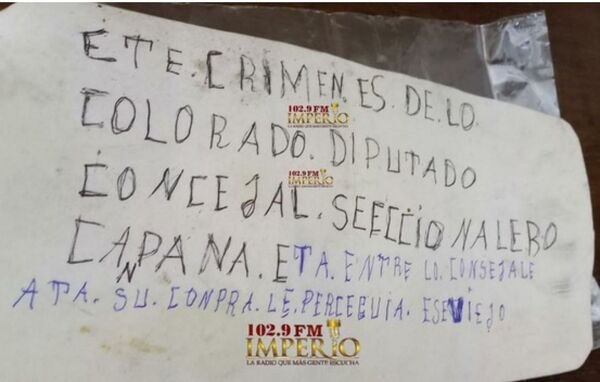 ETE. CRIMEN. ES. DE. LO.
102.9 FM
IMPERIO
LA RADIO QUE MÁS GENTE ESCUCHA
COLORADO. DIPUTADO
102.9 FM
IMPERIO
CONCEJAL. SEECCIONALERO
CANPAÑA. ETA. ENTRE LO. CONSEJALE
ATA. SU. CONPRA. LE. PERCEGUIA. ESEVIEJO
102.9 FM
IMPERIO
LA RADIO QUE MÁS GENTE ESCUCHA